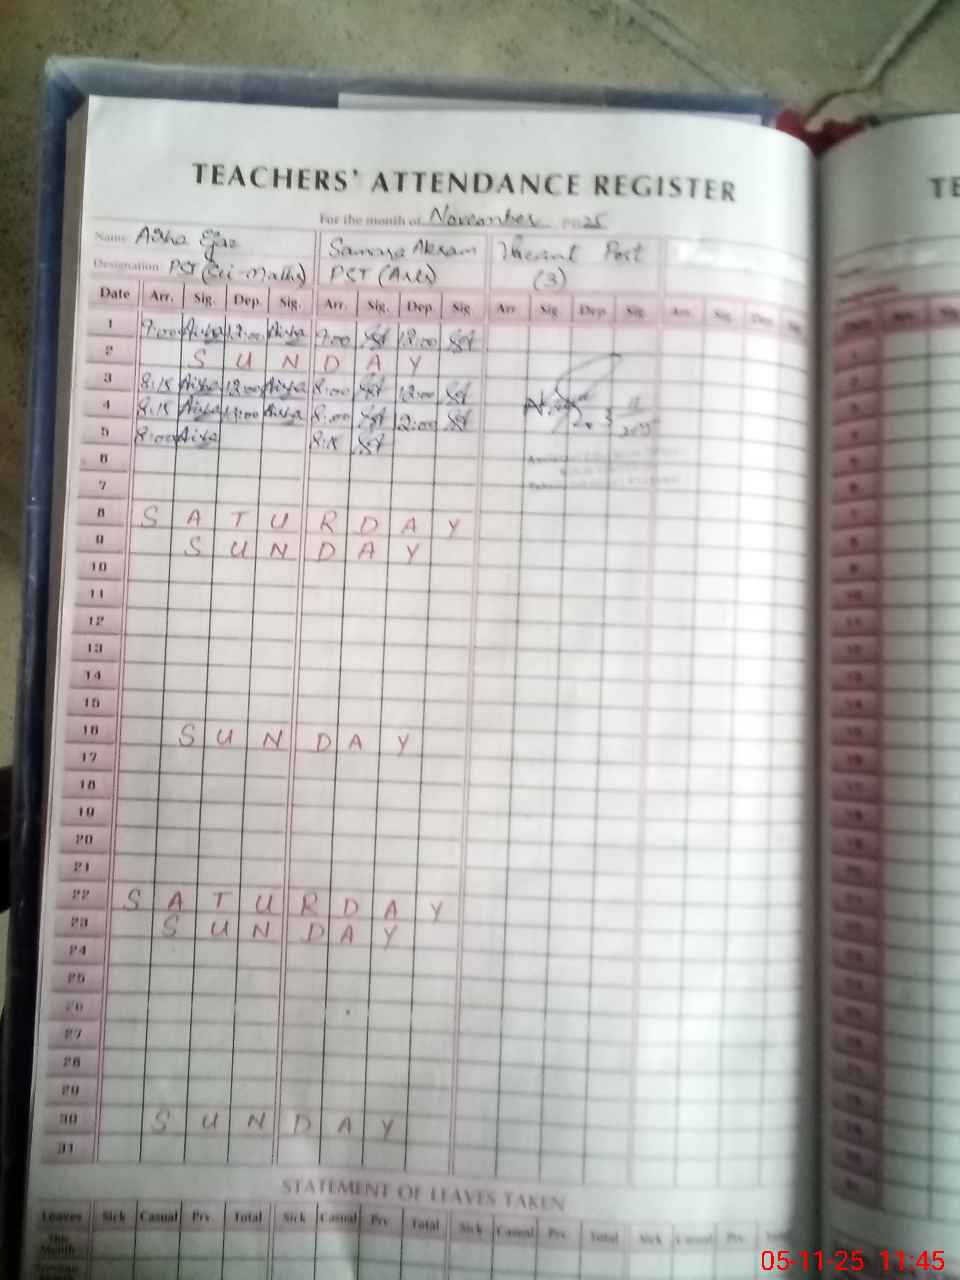 TEACHERS' ATTENDANCE REGISTER
For the month of November 2025
Name Aisha Ejaz Samara Akram Vacant Post
Designation PST (Sci-Maths) PST (Arts) (3)
Date Arr. Sig. Dep. Sig. Arr. Sig. Dep. Sig Arr Sig. Dep. Sig. Arr. Sig. Dep.
1 9:00 Aisha 12:00 Aisha 9:00 12:00
2 SUNDAY
3 8:15 Aisha 12:00 Aisha 8:00 12:00
4 8:15 Aisha Aisha 8:00 12:00
5 8:00 Aisha 8:15
6
7
8 SATURDAY
9 SUNDAY
10
11
12
13
14
15
16 SUNDAY
17
18
19
20
21
22 SATURDAY
23 SUNDAY
24
25
26
27
28
29
30 SUNDAY
31
STATEMENT OF LEAVES TAKEN
Leaves Sick Casual Prv. Total Sick Casual Prv. Total Sick Casual Prv. Total Sick Casual Prv.
This
Month
TE
05-11-25 11:45